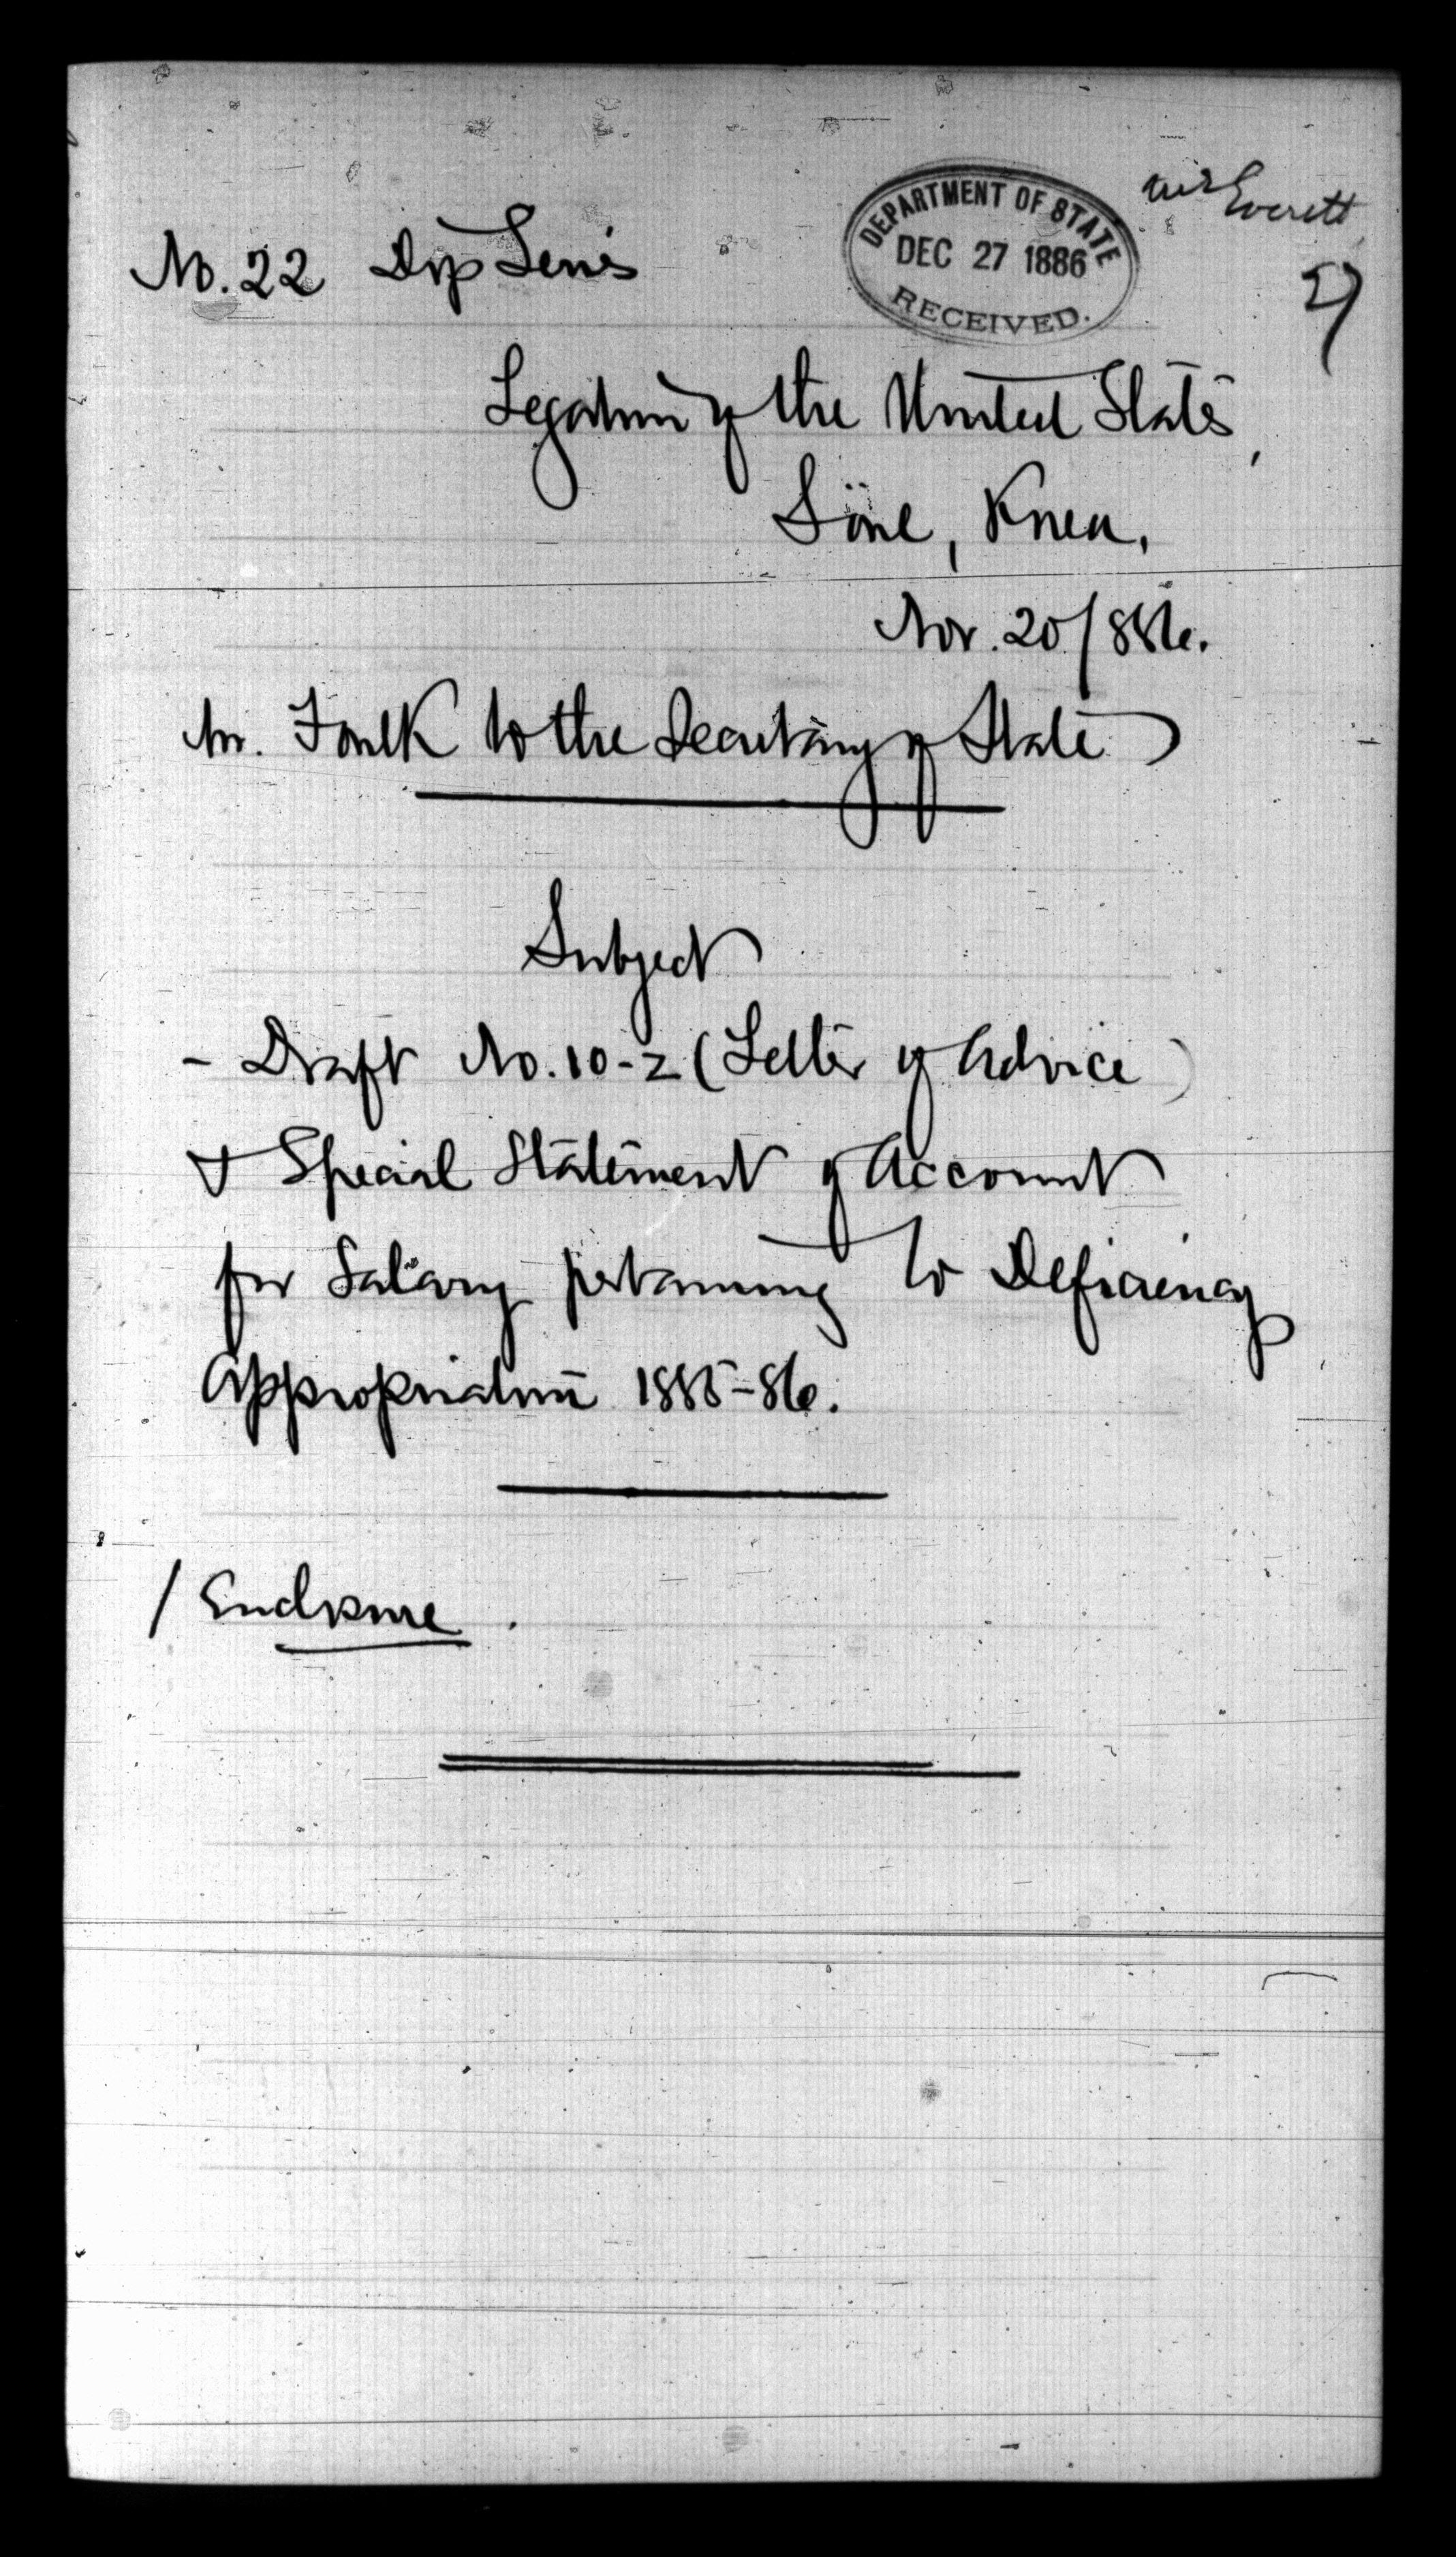 DEPARTMENT OF STATE
DEC 27 1886
RECEIVED.
Everett
No. 22 Dip Series
Legation of the United States,
Söul, Korea,
Nov. 20/886.
Mr. Foulk to the Secretary of State
Subject
- Draft No. 10-2 (Letter of Advice)
& Special Statement of Account
for Salary pertaining to Deficiency
Appropriation 1885-86.
1 Enclosure.